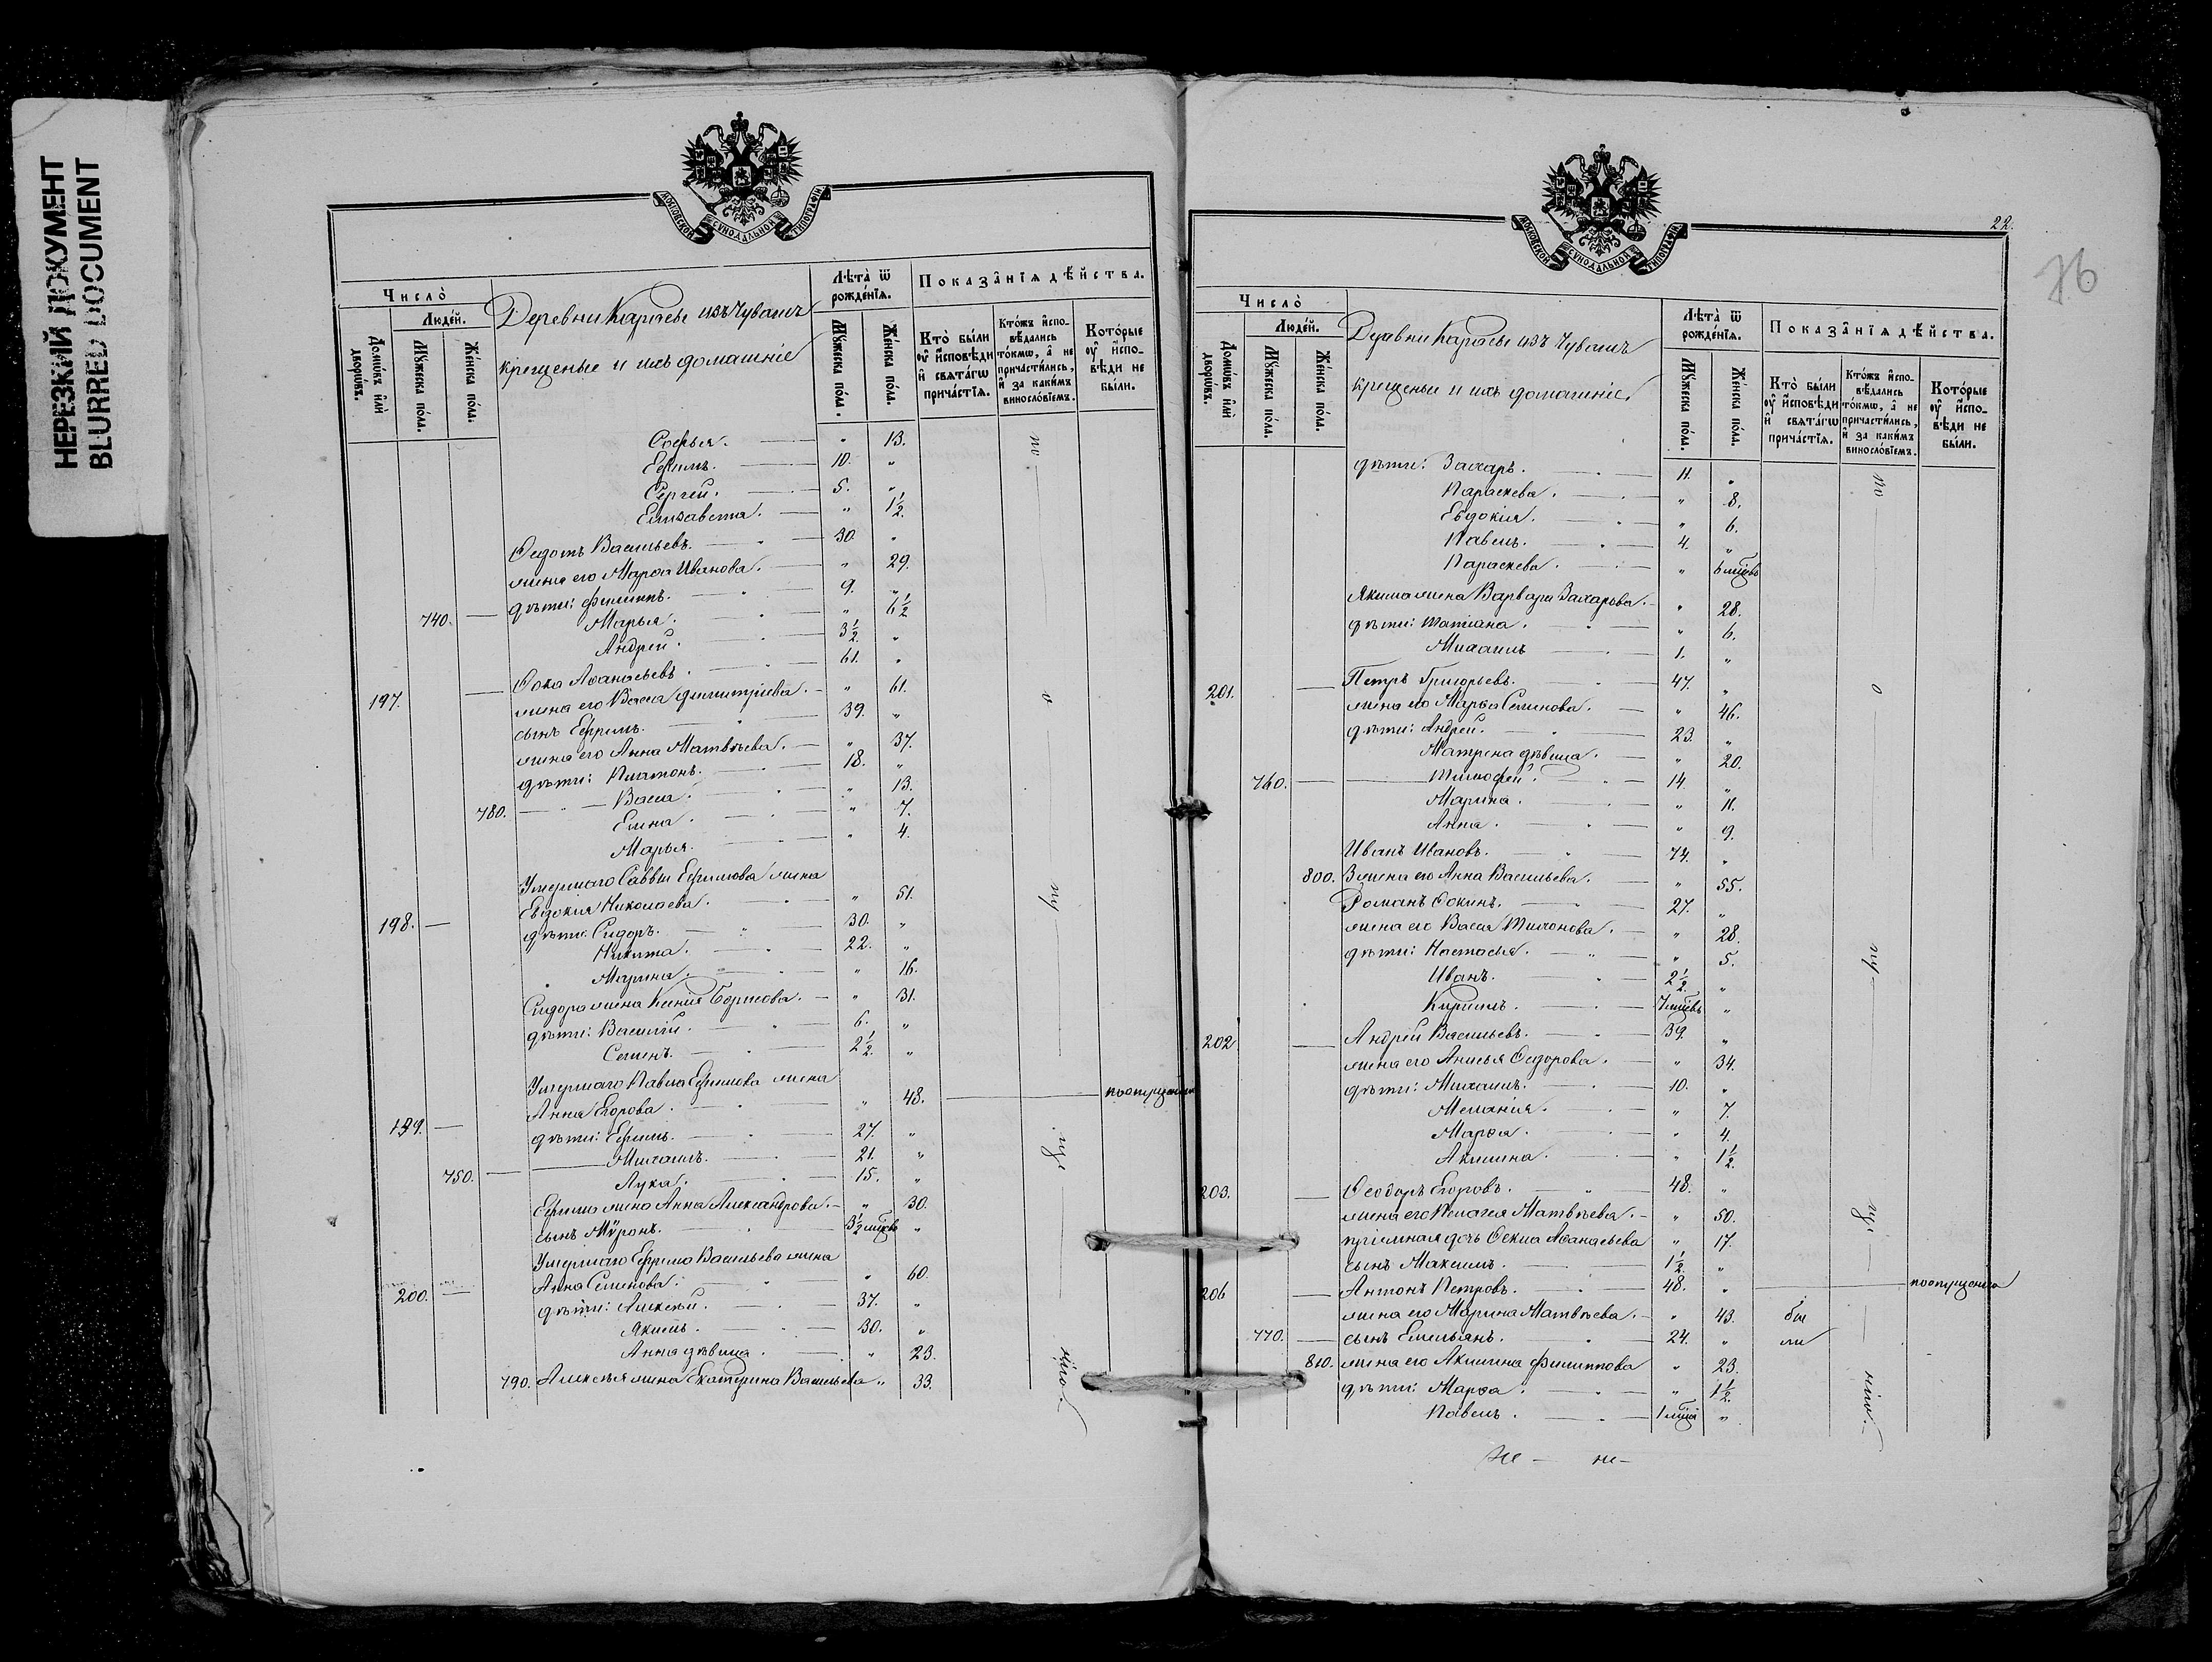 НЕРЕЗКИЙ ДОКУМЕНТ
BLURRED DOCUMENT
МОСКОВСКОЙ СѴНОДАЛЬНОЙ ТИПОГРАФІИ
Число̀
Люде́й.
Домѡ́въ и҆лѝ дворѡ́въ.
Мꙋ́жеска по́ла.
Же́нска по́ла.
Деревни Карасье изъ Чувашъ
крещеные и ихъ домашніе
Лѣта̀ ѿ рожде́нїѧ.
Мꙋ́жеска по́ла.
Же́нска по́ла.
Показа̂нїѧ дѣ́йства.
Кто̀ бы́ли оу҆ и҆сповѣ́ди и҆ свѧта́гѡ прича́стїѧ.
Кто́жъ и҆спо-
вѣ́дались то́кмѡ, а҆ не причасти́лись, и҆ за каки́мъ винослѡ́вїемъ.
Кото́рые оу҆ и҆спо-
вѣ́ди не бы́ли.
Софья. " 13.
Ефимъ. 10. "
Сергѣй. 5. "
Елизавета. " 1½.
Ѳедотъ Васильевъ. 30 "
жена его Марѳа Иванова. " 29.
дѣти: Филиппъ. 9. "
740. Марья. " 6½
Андрей. 3½. "
197. Ѳока Аѳанасьевъ. 61. "
жена его Васса Димитріева. " 61.
сынъ Ефремъ. 39. "
жена его Анна Матвѣева. " 37.
дѣти: Платонъ. 18. "
780. Васса. " 13.
Елена. " 7.
Марья. " 4.
Умершаго Саввы Ефимова жена
Евдокия Николаева. " 51.
198. дѣти: Сидоръ. 30. "
Никита. 22. "
Марина. " 16.
Сидора жена Ксения Борисова. " 31.
дѣти: Василій. 6. "
Семенъ. 2½. "
Умершаго Павла Ефимова жена
Анна Егорова. " 48. по опущенію
199. дѣти: Ефимъ. 27. "
Михаилъ. 21. "
750. Лука. 15. "
Ефима жена Анна Александрова. " 30.
сынъ Мѵронъ. 3½ мѣсѧв "
Умершаго Ефрема Васильева жена
Анна Семенова. " 60.
200. дѣти: Алексѣй. 37. "
Якимъ. 30. "
Анна дѣвица. " 23.
790. Алексѣя жена Екатерина Васильева " 33.
22.
76
МОСКОВСКОЙ СѴНОДАЛЬНОЙ ТИПОГРАФІИ
Число̀
Люде́й.
Домѡ́въ и҆лѝ дворѡ́въ.
Мꙋ́жеска по́ла.
Же́нска по́ла.
Деревни Карасье изъ Чувашъ
крещеные и ихъ домашніе
Лѣта̀ ѿ рожде́нїѧ.
Мꙋ́жеска по́ла.
Же́нска по́ла.
Показа̂нїѧ дѣ́йства.
Кто̀ бы́ли оу҆ и҆сповѣ́ди и҆ свѧта́гѡ прича́стїѧ.
Кто́жъ и҆спо-
вѣ́дались то́кмѡ, а҆ не причасти́лись, и҆ за каки́мъ винослѡ́вїемъ.
Кото́рые оу҆ и҆спо-
вѣ́ди не бы́ли.
дѣти: Захаръ. 11. "
Параскева. " 8.
Евдокия. " 6.
Павелъ. 4. "
Параскева. " 6 мѣсѧв
Якима жена Варвара Захарова. " 28.
дѣти: Татиана. " 6.
Михаилъ 1. "
201. Петръ Григорьевъ. 47. "
жена его Марѳа Семенова. " 46.
дѣти: Андрей. 23. "
Матрена дѣвица. " 20.
760. Тимофей. 14. "
Марина. " 11.
Анна. " 9.
Иванъ Ивановъ. 74. "
800. 2 жена его Анна Васильева. " 55.
Романъ Ѳокинъ. 27. "
жена его Васса Тихонова. " 28.
дѣти: Настасья. " 5.
Иванъ. 2½. "
Кирилъ. 7 мѣсѧв "
202 Андрей Васильевъ. 39. "
жена его Анисья Ѳедорова. " 34.
дѣти: Михаилъ. 10. "
Мелания. " 7.
Марѳа. " 4.
Акилина. " 1½.
203. Ѳеодоръ Егоровъ. 48. "
жена его Пелагея Матвѣева. " 50.
приемная дочь Ѳекла Аѳанасьева " 17.
сынъ Максимъ. 1½. "
206 Антонъ Петровъ. 48. " по опущенію
жена его Марина Матвѣева. " 43. бы
770. сынъ Емельянъ. 24. " ли
810. жена его Акилина Филиппова " 23.
дѣти: Марѳа. " 1½.
Павелъ. 1 мѣсѧ "